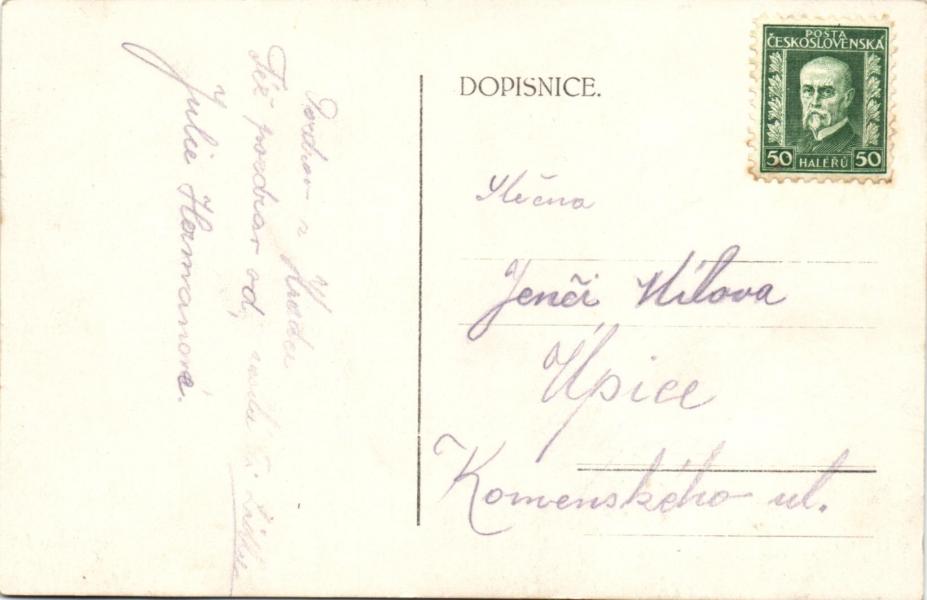 Pozdrav z Hradce
Též pozdrav od
Julie Hermanové.
DOPISNICE.
Slečna
Jenči Kílova
Úpice
Komenského ul.
POŠTA
ČESKOSLOVENSKÁ
50 HALÉŘŮ 50